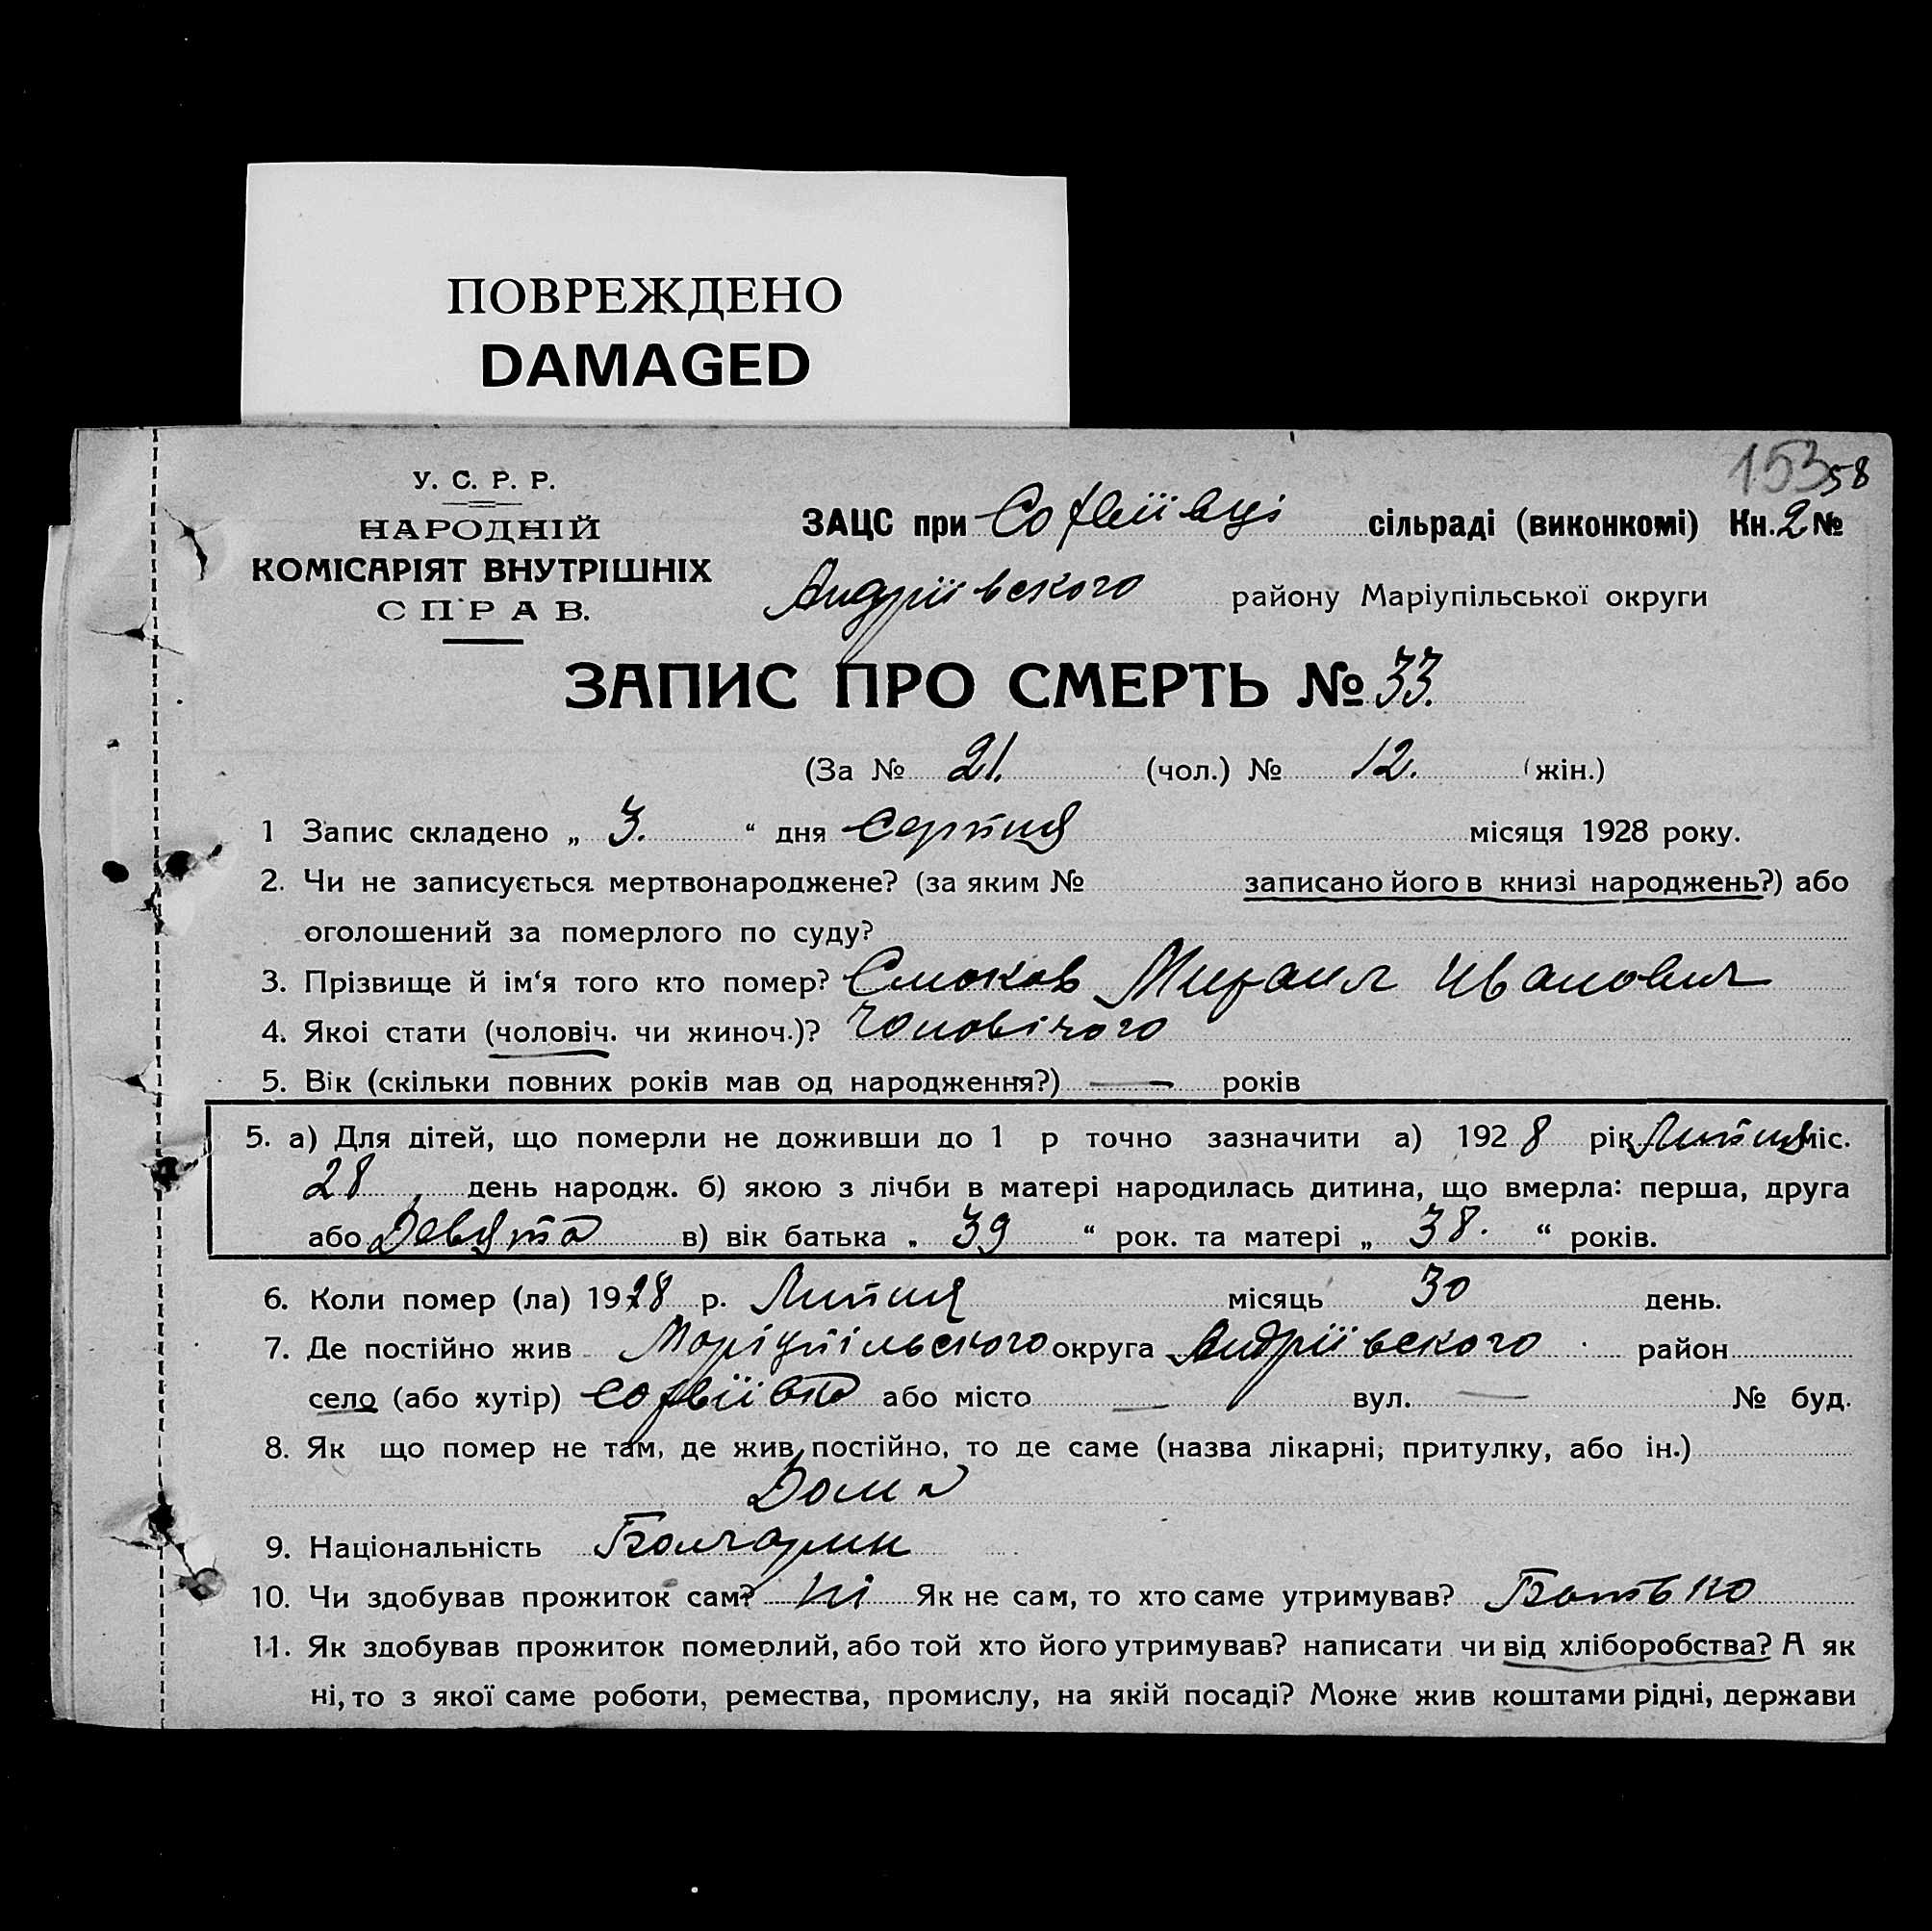 ПОВРЕЖДЕНО
DAMAGED
153 58
У. С. Р. Р.
НАРОДНІЙ
КОМІСАРІЯТ ВНУТРІШНІХ
СПРАВ.
ЗАЦС при Софіівці сільраді (виконкомі) Кн. 2 №
Андріівского району Маріупільської округи
ЗАПИС ПРО СМЕРТЬ № 33.
(За № 21. (чол.) № 12. (жін.)
1 Запис складено „ 3. “ дня Серпня місяця 1928 року.
2. Чи не записується мертвонароджене? (за яким № записано його в книзі народжень?) або
оголошений за померлого по суду?
3. Прізвище й ім‘я того кто помер? Михаил Иванович
4. Якоі стати (чоловіч. чи жиноч.)? Чоловічого
5. Вік (скільки повних років мав од народження?) — років
5. а) Для дітей, що померли не доживши до 1 р точно зазначити а) 1928 рік Липня міс.
28 день народж. б) якою з лічби в матері народилась дитина, що вмерла: перша, друга
або Девята в) вік батька „ 39 “ рок. та матері „ 38. “ років.
6. Коли помер (ла) 1928 р. Липня місяць 30 день.
7. Де постійно жив Маріупільского округа Андріівского район
село (або хутір) Софіівка або місто — вул. — № буд.
8. Як що помер не там, де жив постійно, то де саме (назва лікарні, притулку, або ін.)
Дома
9. Національність Болгарин
10. Чи здобував прожиток сам? Ні Як не сам, то хто саме утримував? Батько
11. Як здобував прожиток померлий, або той хто його утримував? написати чи від хліборобства? А як
ні, то з якої саме роботи, ремества, промислу, на якій посаді? Може жив коштами рідні, держави